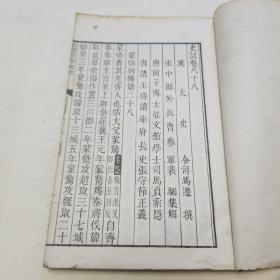 史記卷八十八
漢太史令司馬遷撰
宋中郎外兵曹參軍裴駰集解
唐國子博士弘文館學士司馬貞索隱
唐諸王侍讀率府長史張守節正義
蒙恬列傳第二十八
蒙恬者其先齊人也恬大父蒙驁
自齊
事秦昭王官至上卿秦莊襄王元年蒙驁為秦將伐韓
取成皋滎陽作置三川郡二年蒙驁攻趙取三十七城
始皇三年蒙驁攻韓取十三城五年蒙驁攻魏取二十